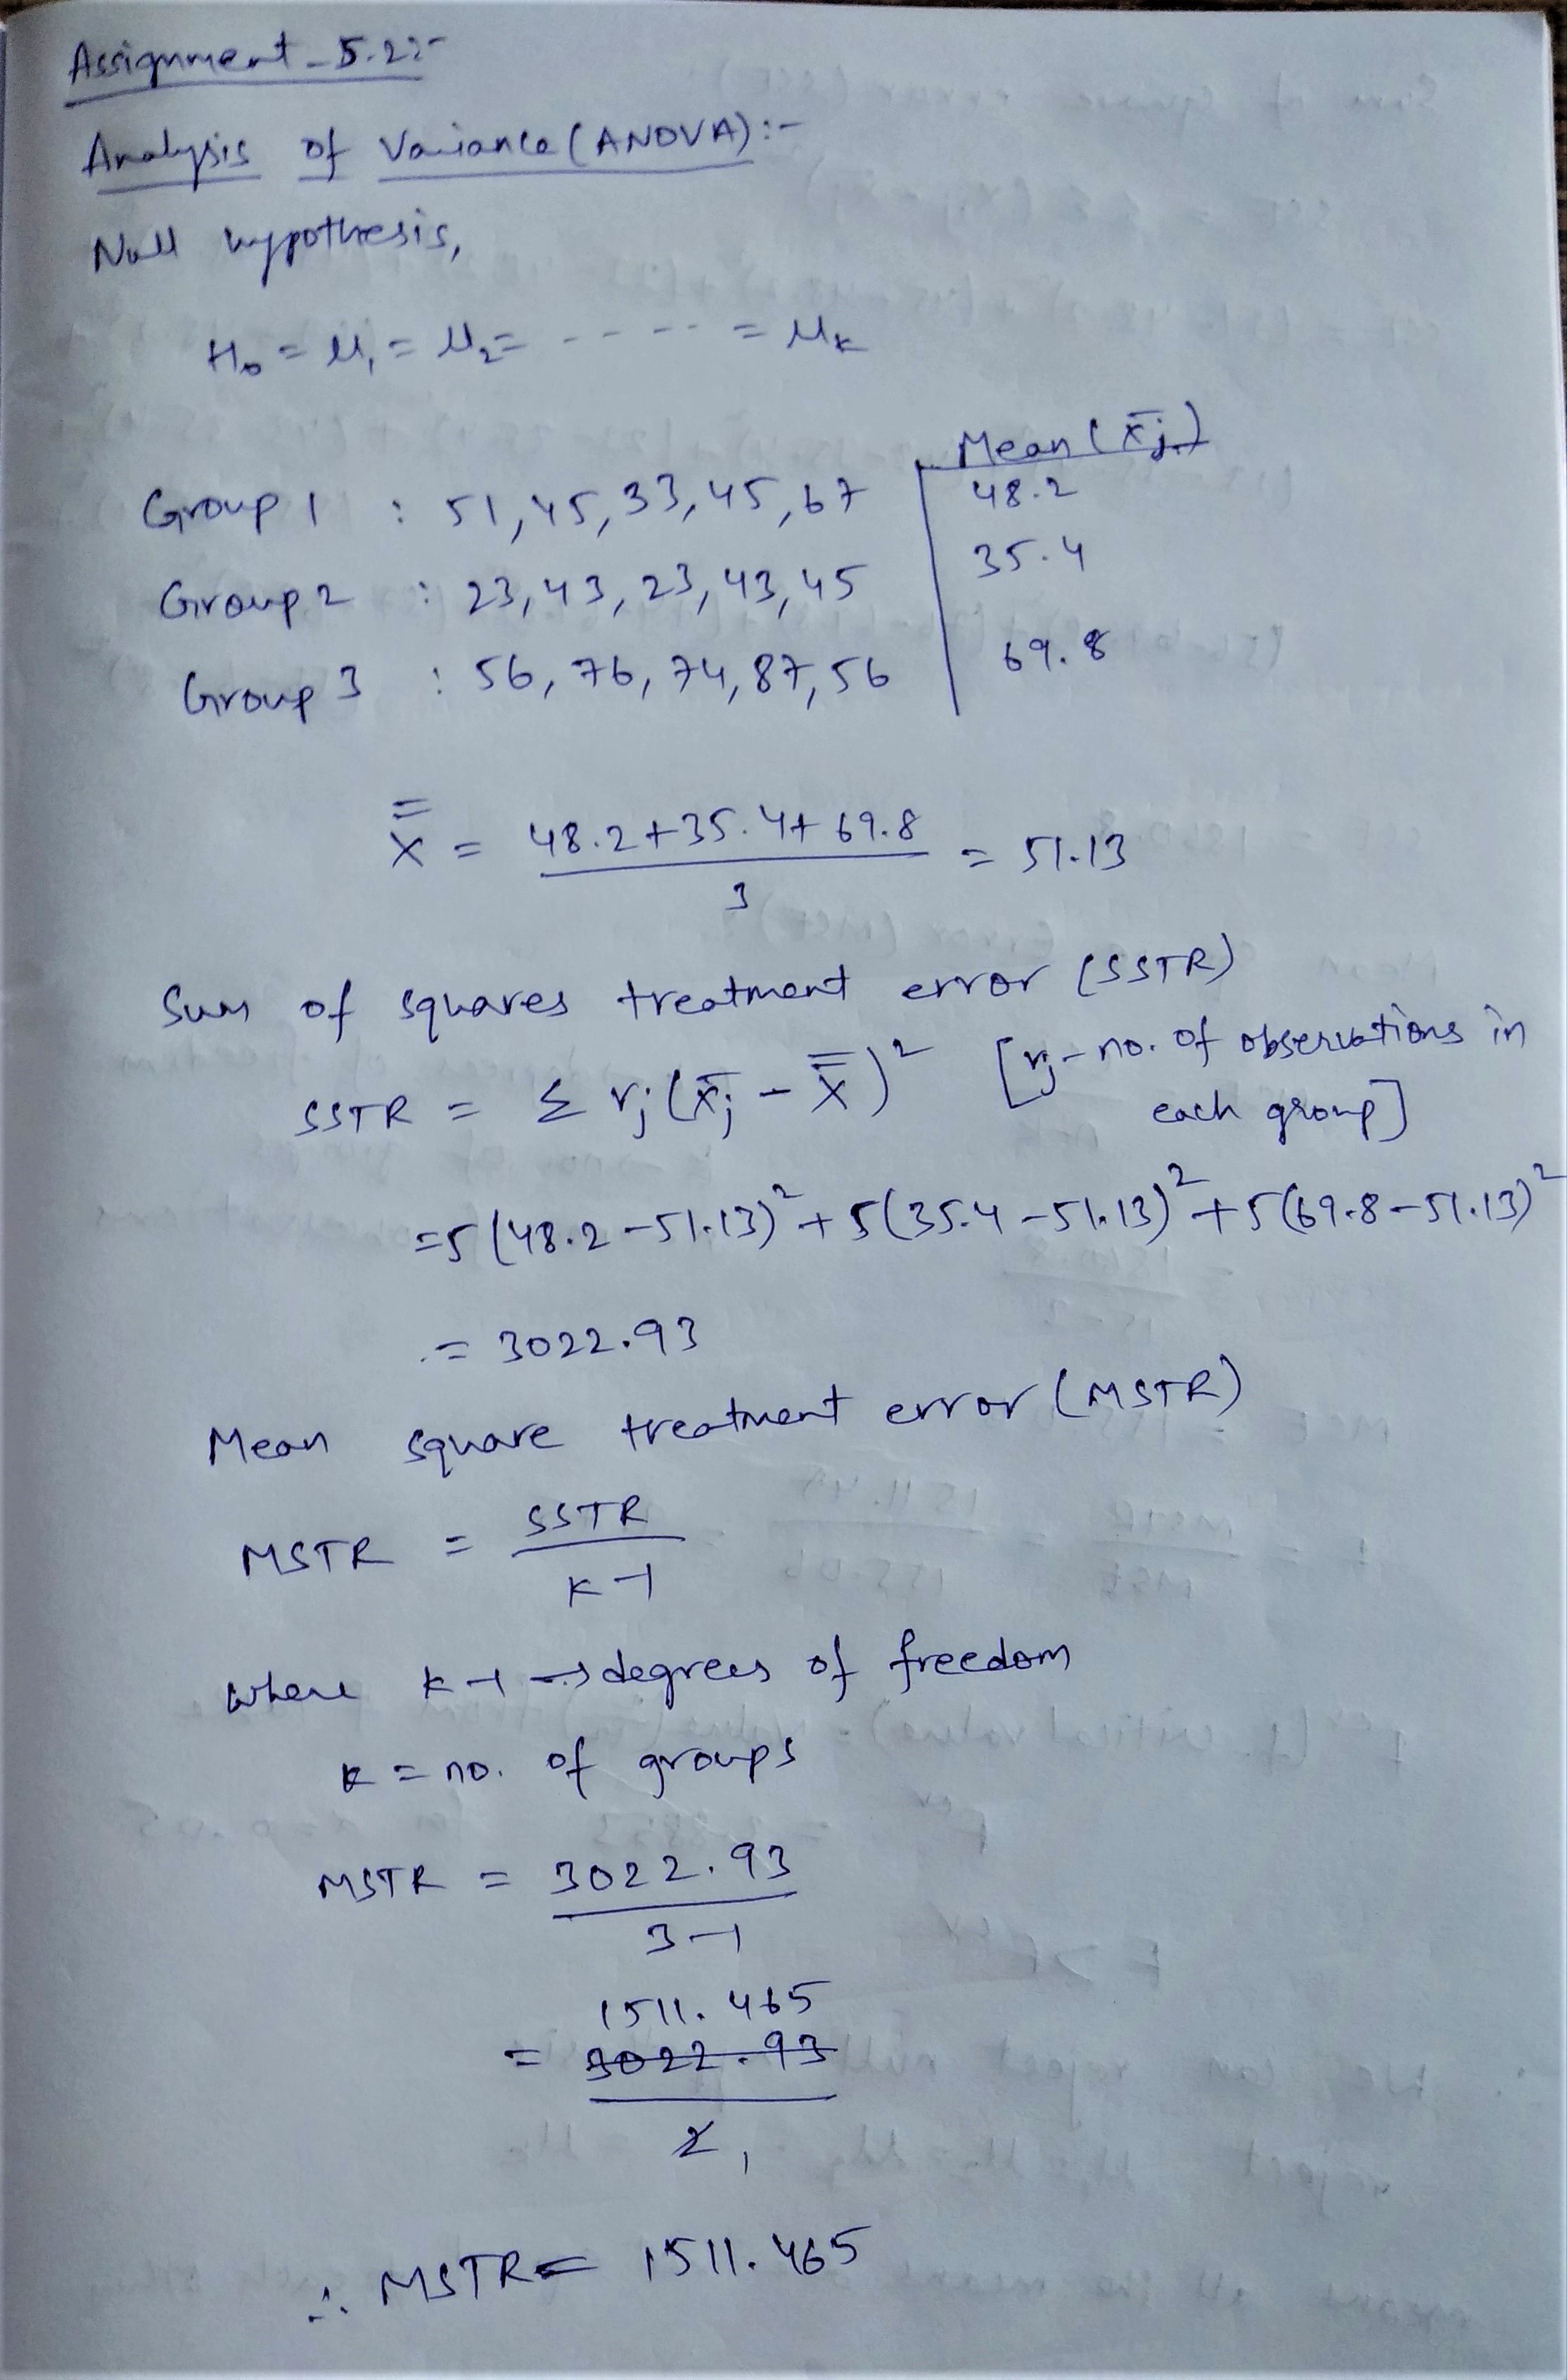 Assignment - 5.2:-
Analysis of Variance (ANOVA):-
Null hypothesis,
H₀ = μ₁ = μ₂ = - - - - - = μₖ
Mean (x̄ⱼ)
Group 1 : 51, 45, 33, 45, 67 | 48.2
Group 2 : 23, 43, 23, 43, 45 | 35.4
Group 3 : 56, 76, 74, 87, 56 | 69.8
x̿ = (48.2 + 35.4 + 69.8) / 3 = 51.13
Sum of squares treatment error (SSTR)
SSTR = Σ rⱼ (x̄ⱼ - x̿)² [rⱼ - no. of observations in
each group]
= 5(48.2 - 51.13)² + 5(35.4 - 51.13)² + 5(69.8 - 51.13)²
= 3022.93
Mean square treatment error (MSTR)
MSTR = SSTR / K-1
where K-1 → degrees of freedom
K = no. of groups
MSTR = 3022.93 / 3-1
1511.465
= 3022.93 / 2 1
∴ MSTR = 1511.465